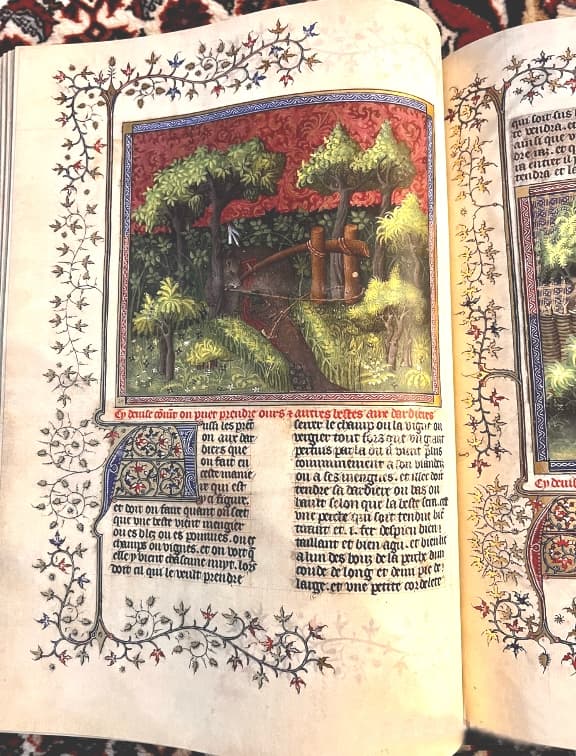 Cy deuise coment on puet prendre ours ⁊ autres bestes aux dardieres
Aussi les prent
on aux dar
dieres que
on fait en
ceste maniere
qui est
cy figure.
et doit on faire quant on scet
que une beste vient mengier
ou es blez ou es pommes. ou es
champs ou vignes. et on voit q̃
elle y vient chascune nuyt. lors
doit cil qui le veult prendre
serrer le champ ou la vigne ou
vergier tout fors que un grant
pertuis par la ou il vient plus
communement a son viander
ou a ses mengies. et illec doit
tendre sa dardiere ou bas ou
haute selon que la beste sera. cest
une perche qui soit tendue bien
et. i. fer despieu bien
taillant et bien agu. et bien lie
a lun des bouz de la perche dun
coude de long et demi pie de
large. et une petite cordelete
qui soit
et vendra. et
ainsi que
Cy deuise